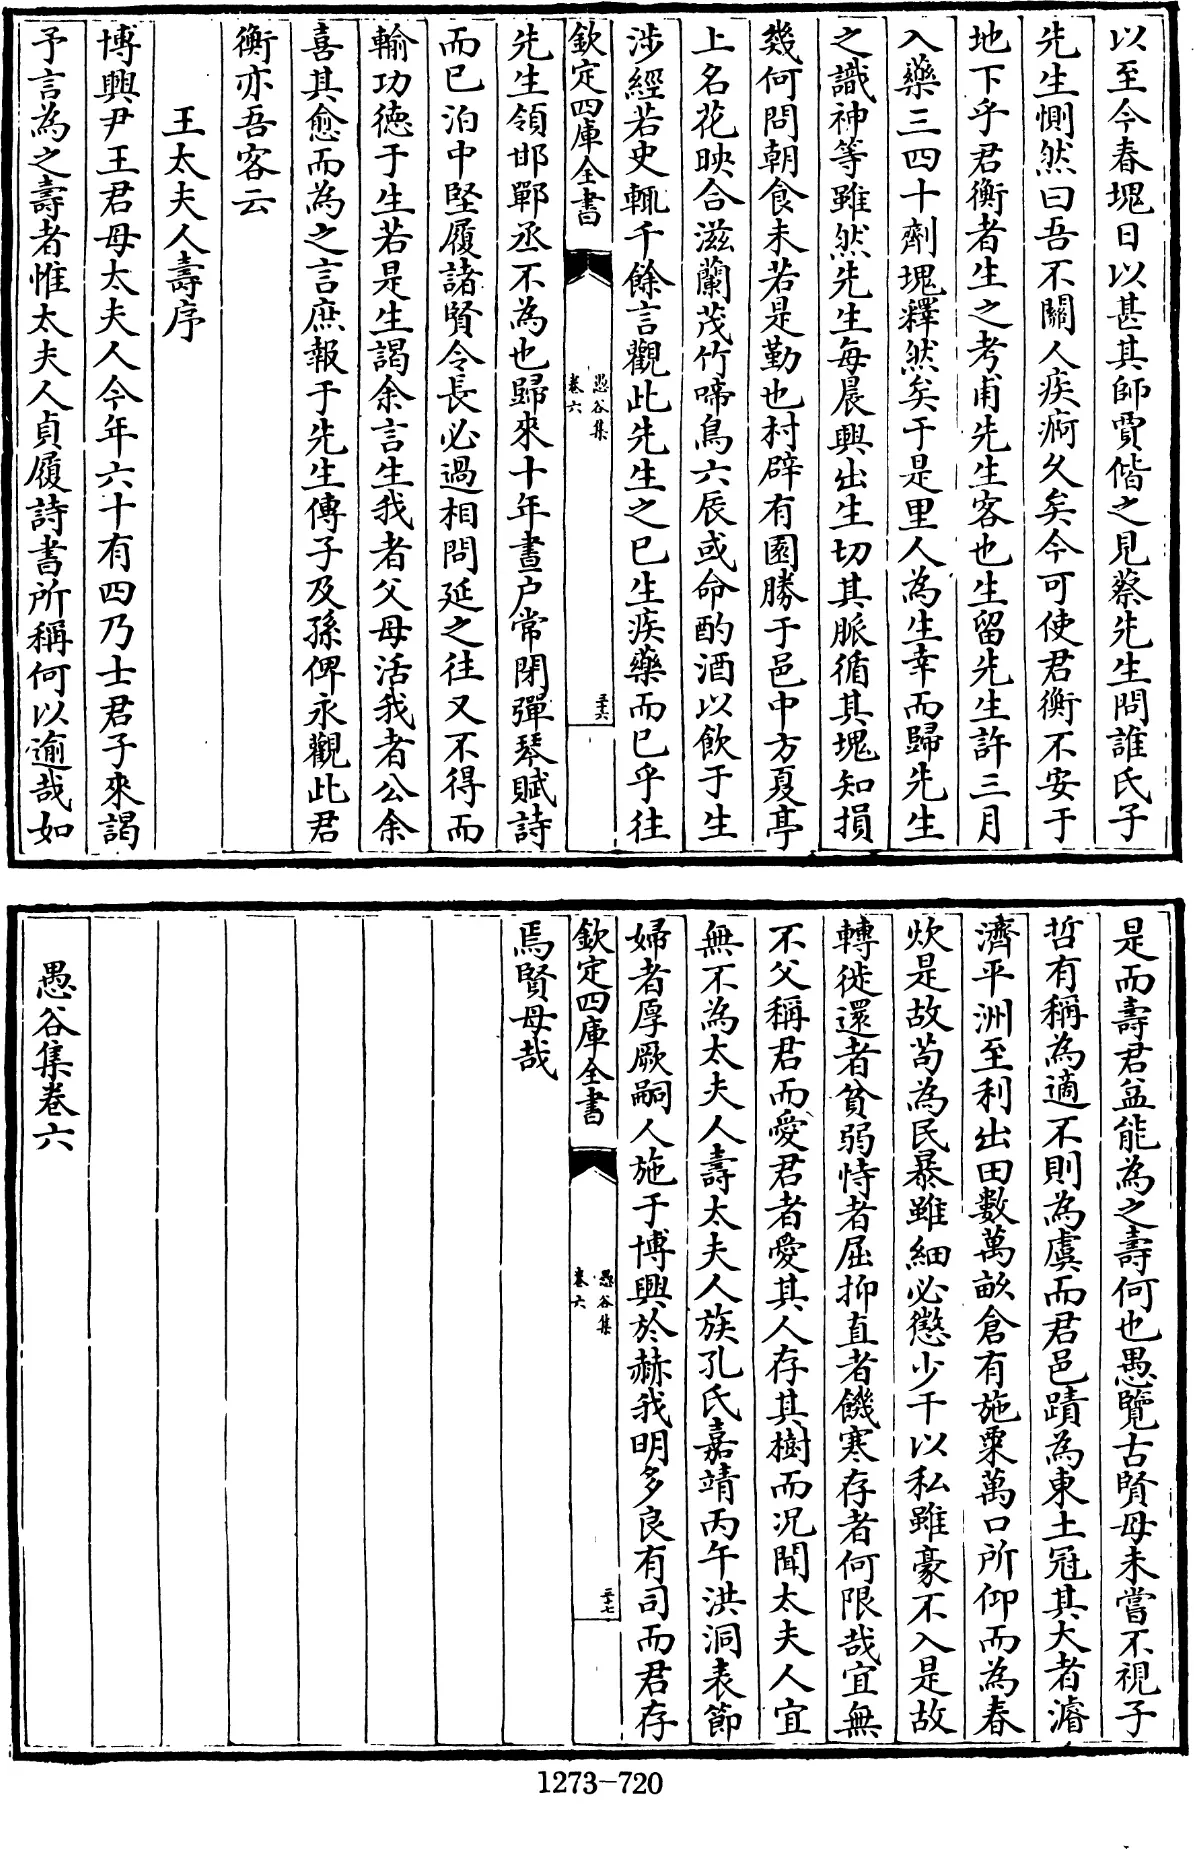 以至今春塊日以甚其師賈偕之見蔡先生問誰氏子
先生惻然曰吾不關人疾痾久矣今可使君衡不安于
地下乎君衡者生之考甫先生客也生留先生許三月
入藥三四十劑塊釋然矣于是里人為生幸而歸先生
之識神等雖然先生每晨興出生切其脈循其塊知損
幾何問朝食未若是勤也村辟有園勝于邑中方夏亭
上名花映合滋蘭茂竹啼鳥六辰或命酌酒以飲于生
涉經若史輒千餘言觀此先生之已生疾藥而已乎往
欽定四庫全書
愚谷集
卷六
三十六
先生領邯鄲丞不為也歸來十年晝户常閉彈琴賦詩
而已泊中堅履諸賢令長必過相問延之往又不得而
輸功德于生若是生謁余言生我者父母活我者公余
喜其愈而為之言庶報于先生傳子及孫俾永觀此君
衡亦吾客云
王太夫人壽序
博興尹王君母太夫人今年六十有四乃士君子來謁
予言為之壽者惟太夫人貞履詩書所稱何以逾哉如
是而壽君盆能為之壽何也愚覽古賢母未嘗不視子
哲有稱為適不則為虞而君邑蹟為東土冠其大者濬
濟平洲至利出田數萬畝倉有施粟萬口所仰而為春
炊是故茍為民暴雖細必懲少干以私雖豪不入是故
轉徙還者貧弱恃者屈抑直者饑寒存者何限哉宜無
不父稱君而愛君者愛其人存其樹而况聞太夫人宜
無不為太夫人壽太夫人族孔氏嘉靖丙午洪洞表節
婦者厚厥嗣人施于博興於赫我明多良有司而君存
欽定四庫全書
愚谷集
卷六
三十七
焉賢母哉
愚谷集卷六
1273-720